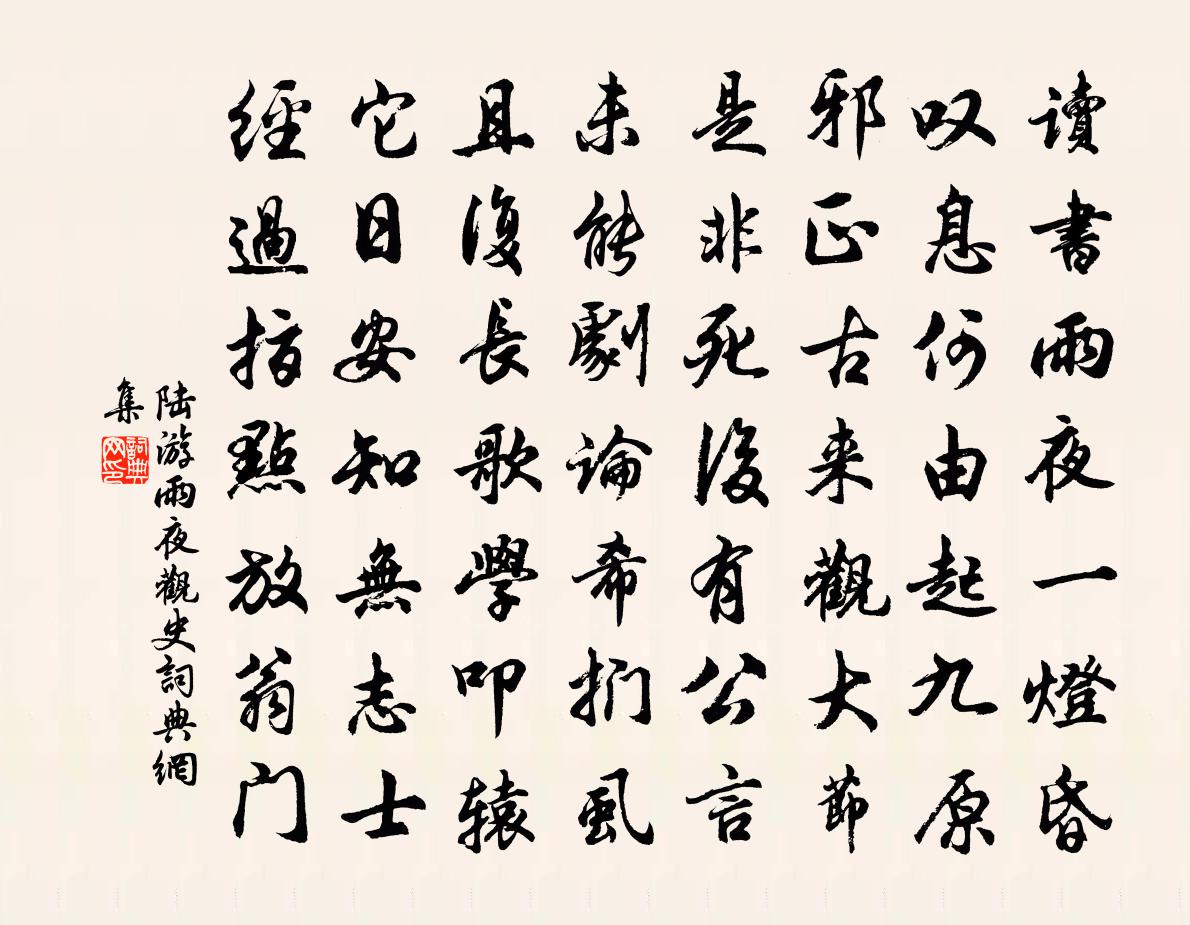 讀書雨夜一燈昏
叹息何由起九原
邪正古来觀大節
是非死後有公言
未能劇論希捫虱
且復長歌學叩辕
它日安知無志士
經過指點放翁门
陆游雨夜觀史詞典網
集
詞典網印